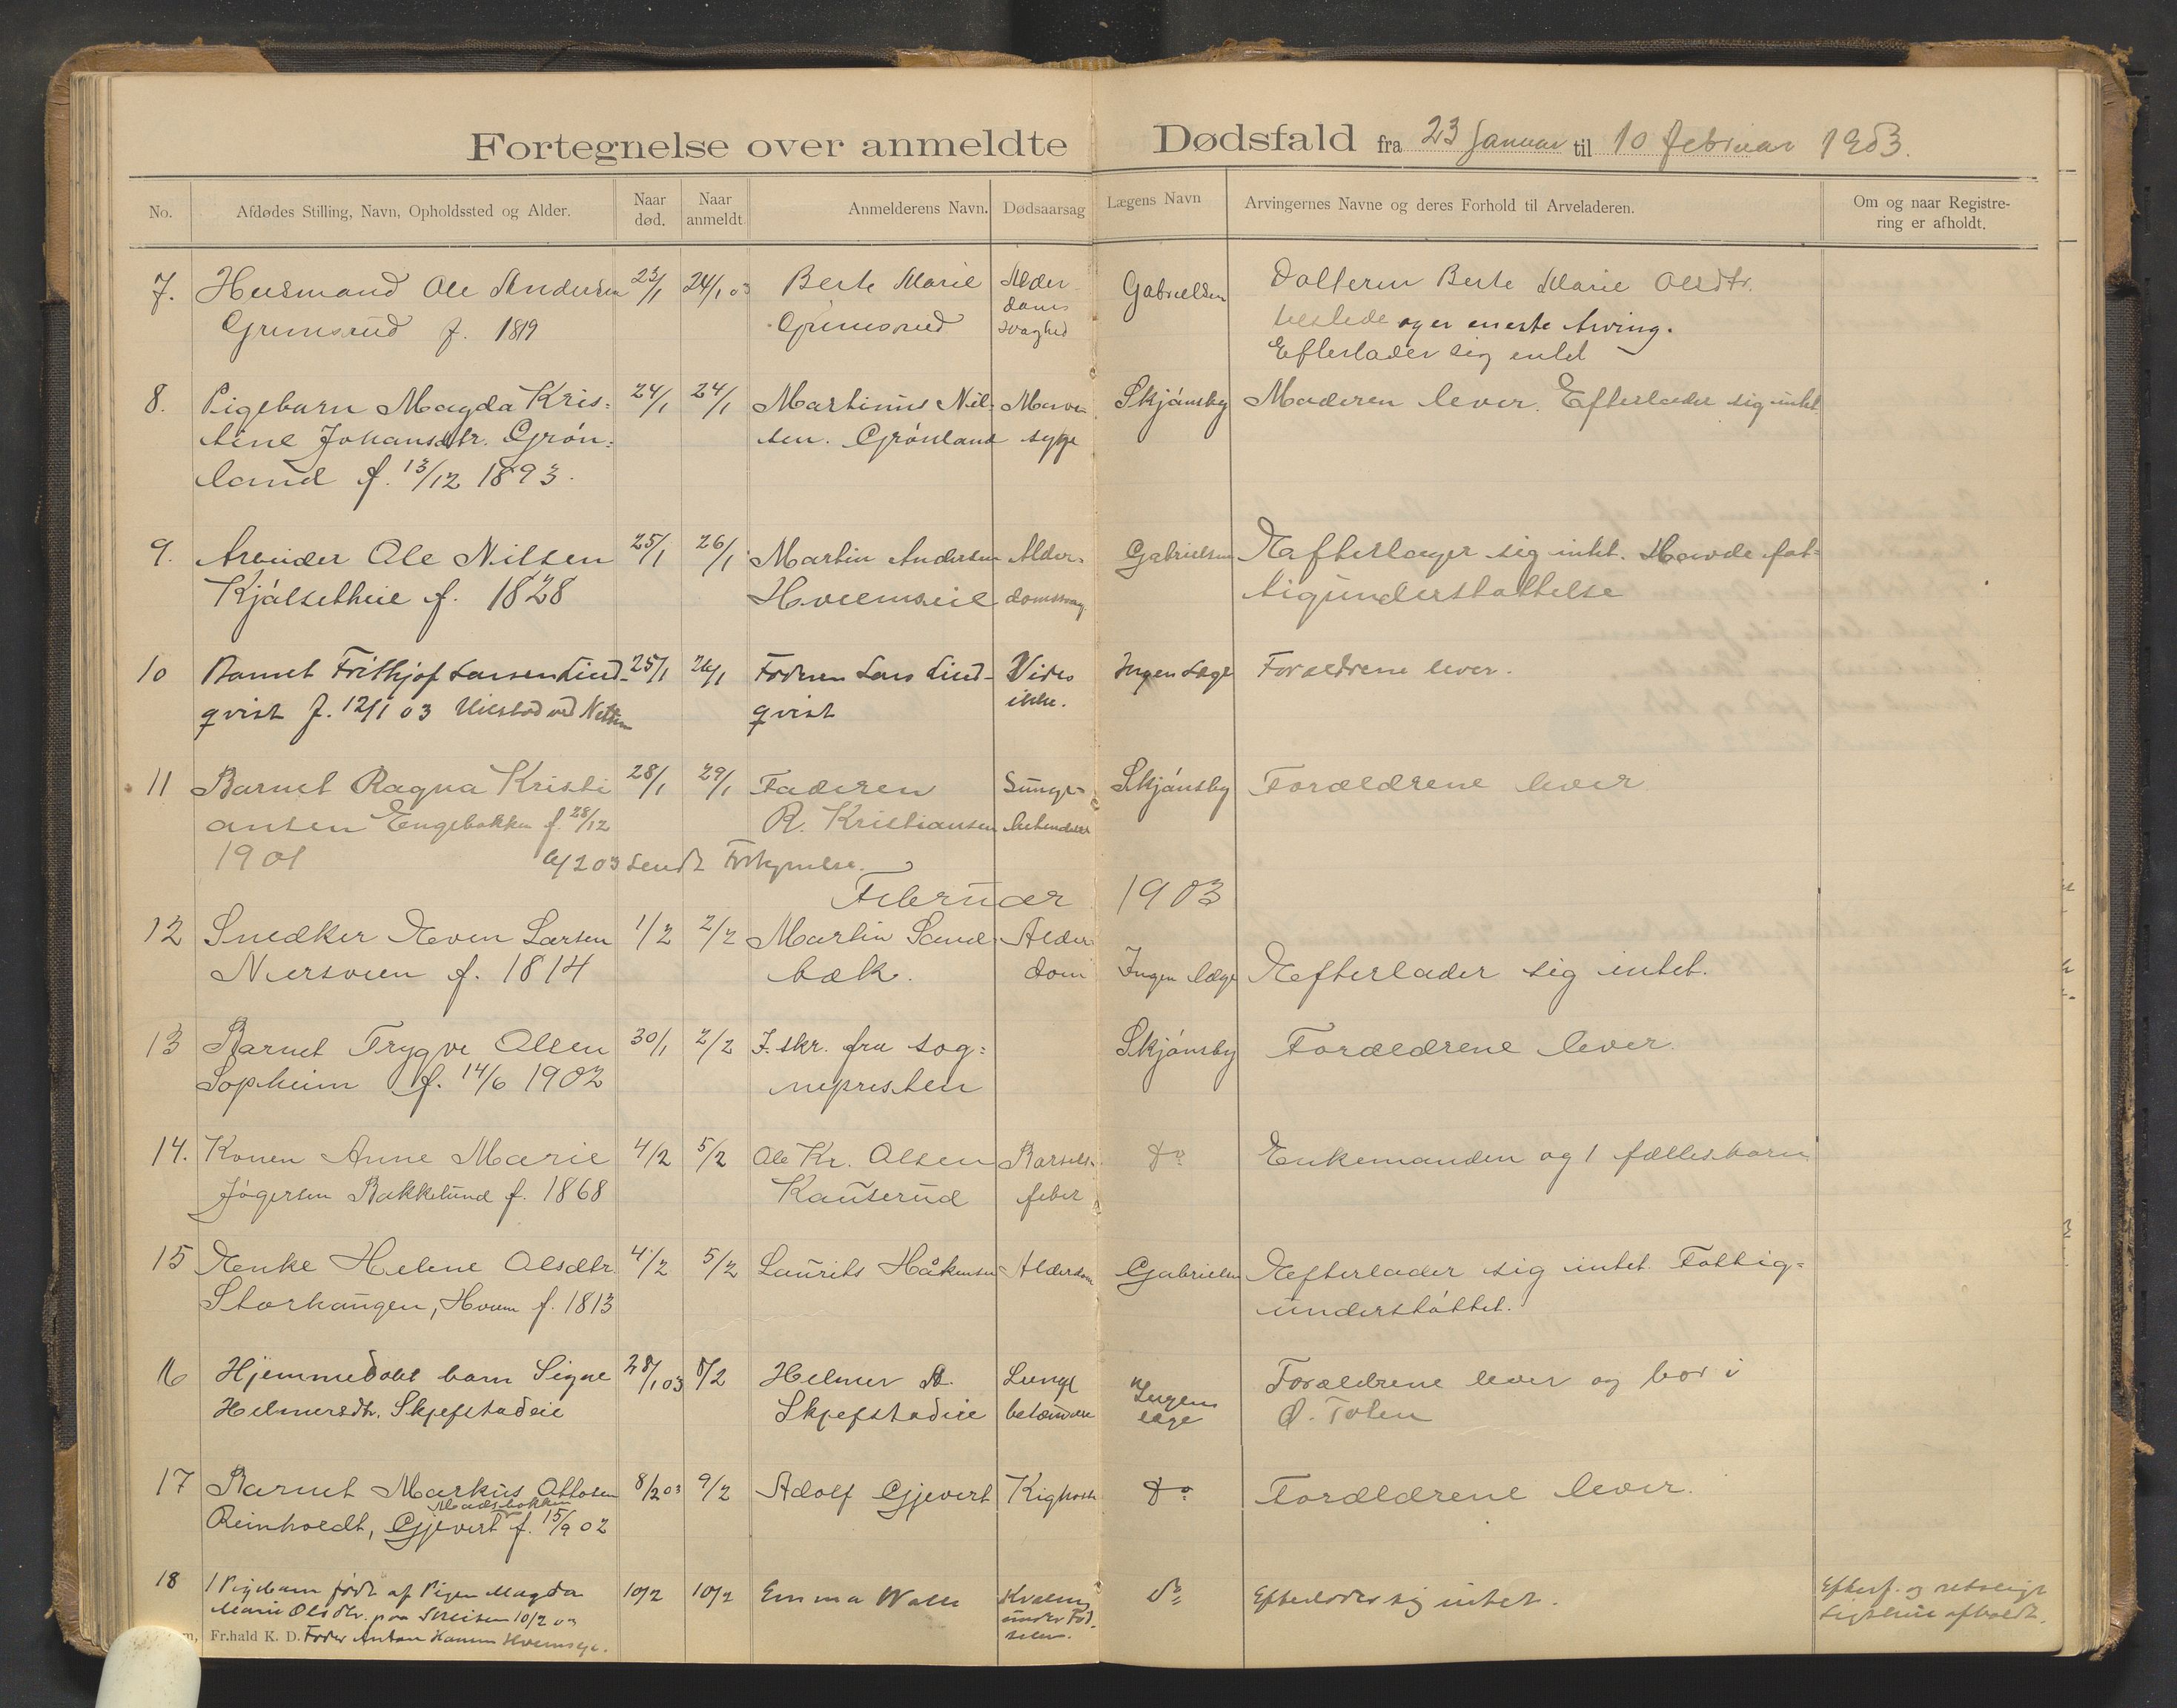 Fortegnelse over anmeldte Dødsfald fra 23 Januar til 10 februar 1903.
No. Afdødes Stilling, Navn, Opholdssted og Alder. Naar død. Naar anmeldt. Anmelderens Navn. Dødsaarsag Lægens Navn Arvingernes Navne og deres Forhold til Arveladeren. Om og naar Registrering er afholdt.
7. Husmand Ole Andersen 23/1 24/1 03 Berte Marie Alder Gabrielsen Datteren Berte Marie Olsdtr.
Grimsrud f. 1819 Grimsrud doms svaghed og er eneste Arving.
Efterlader sig intet
8. Pigebarn Magda Kris= 24/1 24/1 Martinus Nil= Skjønsby Moderen lever. Efterlader sig intet
tine Johansdtr. Grøn= sen. Grønland syge
land f. 13/12 1893.
9. Arbeider Ole Nilsen 25/1 26/1 Martin Andersen Alder= Gabrielsen Efterlader sig intet. Havde fat=
Kjølsetheie f. 1828 Hveemseie domssvag. tigunderstøttelse
10 Barnet Frithjof Larsen Lind- 25/1 26/1 Faderen Lars Lind- Vides Ingen Læge Forældrene lever.
qvist f. 12/1 03 ved qvist ikke.
11 Barnet Ragna Kristi 28/1 29/1 Faderen Lunge- Skjønsby Forældrene lever
ansen Engebakken f. 28/12 R. Kristiansen betendelse
1901 sendt
Februar 1903
12 Snedker Even Larsen 1/2 2/2 Martin Sand= Alder Ingen læge Efterlader sig intet.
Nersveen f. 1814 bæk. dom
13 Barnet Trygve Olsen 30/1 2/2 I. skr. fra sog= Skjønsby Forældrene lever.
Sopheim f. 14/6 1902 nepresten
14. Konen Anne Marie 4/2 5/2 Ole Kr. Olsen Barsels= do Enkemanden og 1 fællesbarn
Jøgersen Bakkelund f. 1868 Kauserud feber
15 Enke Helene Olsdtr 4/2 5/2 Laurits Håkensen Alderdom Gabrielsen Efterlader sig intet. Fattig=
Storhaugen, Hveem f. 1813 understøttet.
16 Hjemmedøbt barn Signe 28/1 03 8/2 Helmer A. Lunge Ingen Forældrene lever og bor i
Helmersdtr. Skjefstadeie Skjefstadeie betændelse læge Ø. Toten
17 Barnet Markus Ottosen 8/2 03 9/2 Adolf Gjevert Kighoste do Forældrene lever.
Madsbakken
Reinholdt, Gjevert f. 15/9 02
18 1 Pigebarn født af Pigen Magda 10/2 10/2 Emma Kvælning do Efterlader sig intet. Efterf. og retsligt
Marie Olsdtr. paa 10/2 03 under Fød- ligsyn afholdt.
Fr.hald K. D. Fader Anton Hansen selen.